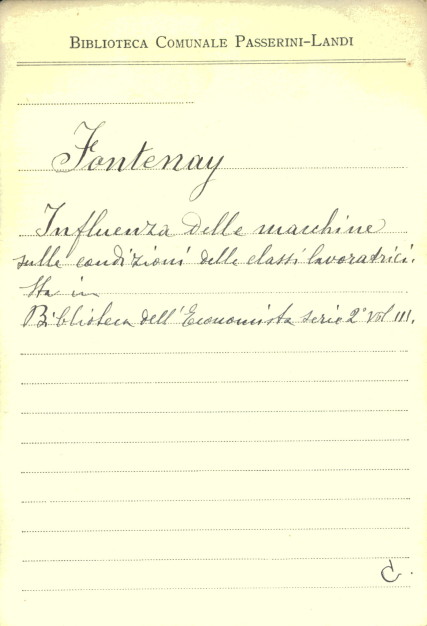 BIBLIOTECA COMUNALE PASSERINI-LANDI
Fontenay
Influenza delle macchine
sulle condizioni delle classi lavoratrici.
Sta in
Biblioteca dell'Economista serie 2ª Vol III.
C.